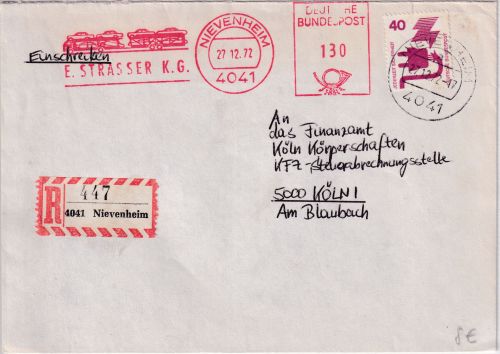 Einschreiben
E. STRASSER K.G.
NIEVENHEIM
27.12.72
4041
DEUTSCHE
BUNDESPOST
130
40
4041
An
das Finanzamt
Köln Körperschaften
KFZ-Steuerabrechnungsstelle
5000 KÖLN 1
Am Blaubach
R
447
4041 Nievenheim
8€